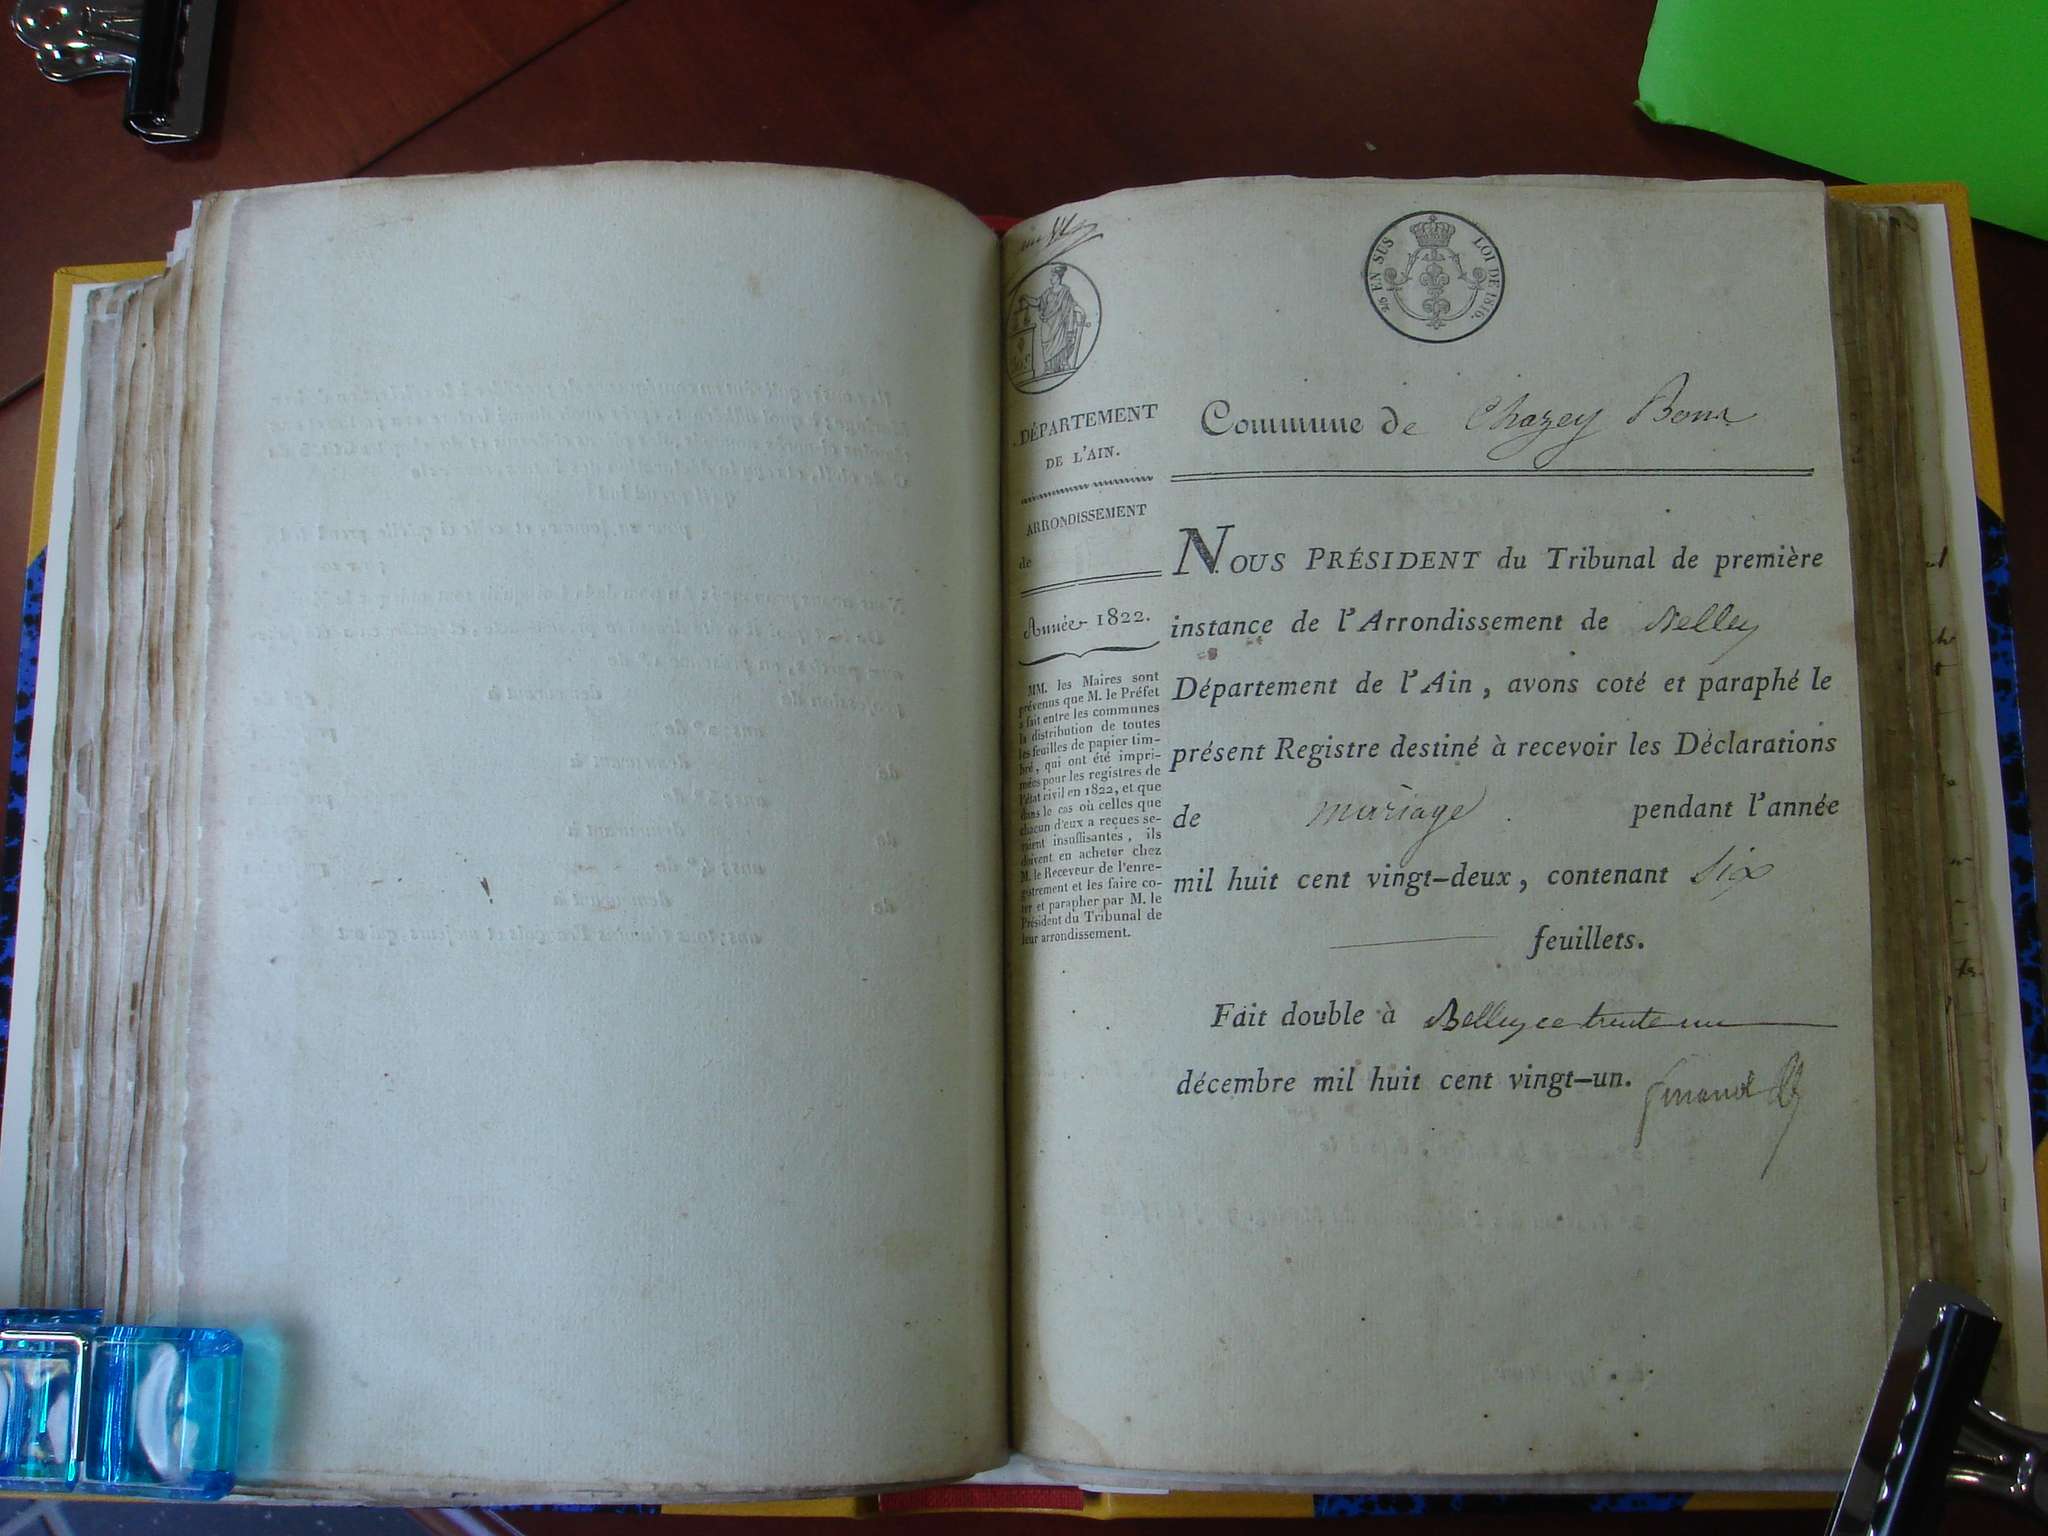 25 EN SUS LOI DE 1816.
DÉPARTEMENT
DE L'AIN.
ARRONDISSEMENT
de
Année 1822.
MM. les Maires sont
prévenus que M. le Préfet
a fait entre les communes
la distribution de toutes
les feuilles de papier tim-
bré, qui ont été impri-
mées pour les registres de
l'état civil en 1822, et que
dans le cas où celles que
chacun d'eux a reçues se-
raient insuffisantes, ils
doivent en acheter chez
M. le Receveur de l'enre-
gistrement et les faire co-
ter et parapher par M. le
Président du Tribunal de
leur arrondissement.
Commune de Chazey Bons
NOUS PRÉSIDENT du Tribunal de première
instance de l'Arrondissement de Belley
Département de l'Ain, avons coté et paraphé le
présent Registre destiné à recevoir les Déclarations
de mariage pendant l'année
mil huit cent vingt-deux, contenant six
feuillets.
Fait double à Belley ce trente un
décembre mil huit cent vingt-un.